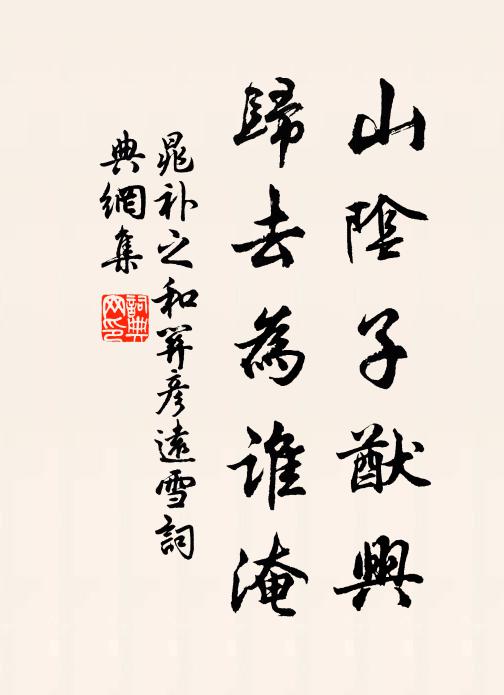 山陰子猷興
歸去為誰淹
晁补之和関彥遠雪詞
典網集
詞典
网印